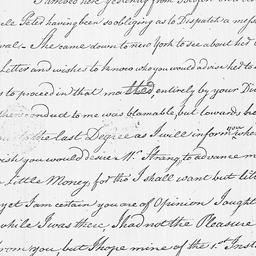 here yesterday from
le Peter having been so obliging as to Dispatch a mess
wal. She came down to new York to see about her
Letter and wishes to know who you would advise her to
to proceed in that method entirely by your Di
their conduct to me was blamable, but towards
to the last Degree as I will inform you when
wish you would desire Mr. Strang, to advance m
a little Money, for tho' I shall want but litt
yet I am certain you are of Opinion I ought
while I was there, I had not the Pleasure
from you, but I hope mine of the 1st Inst